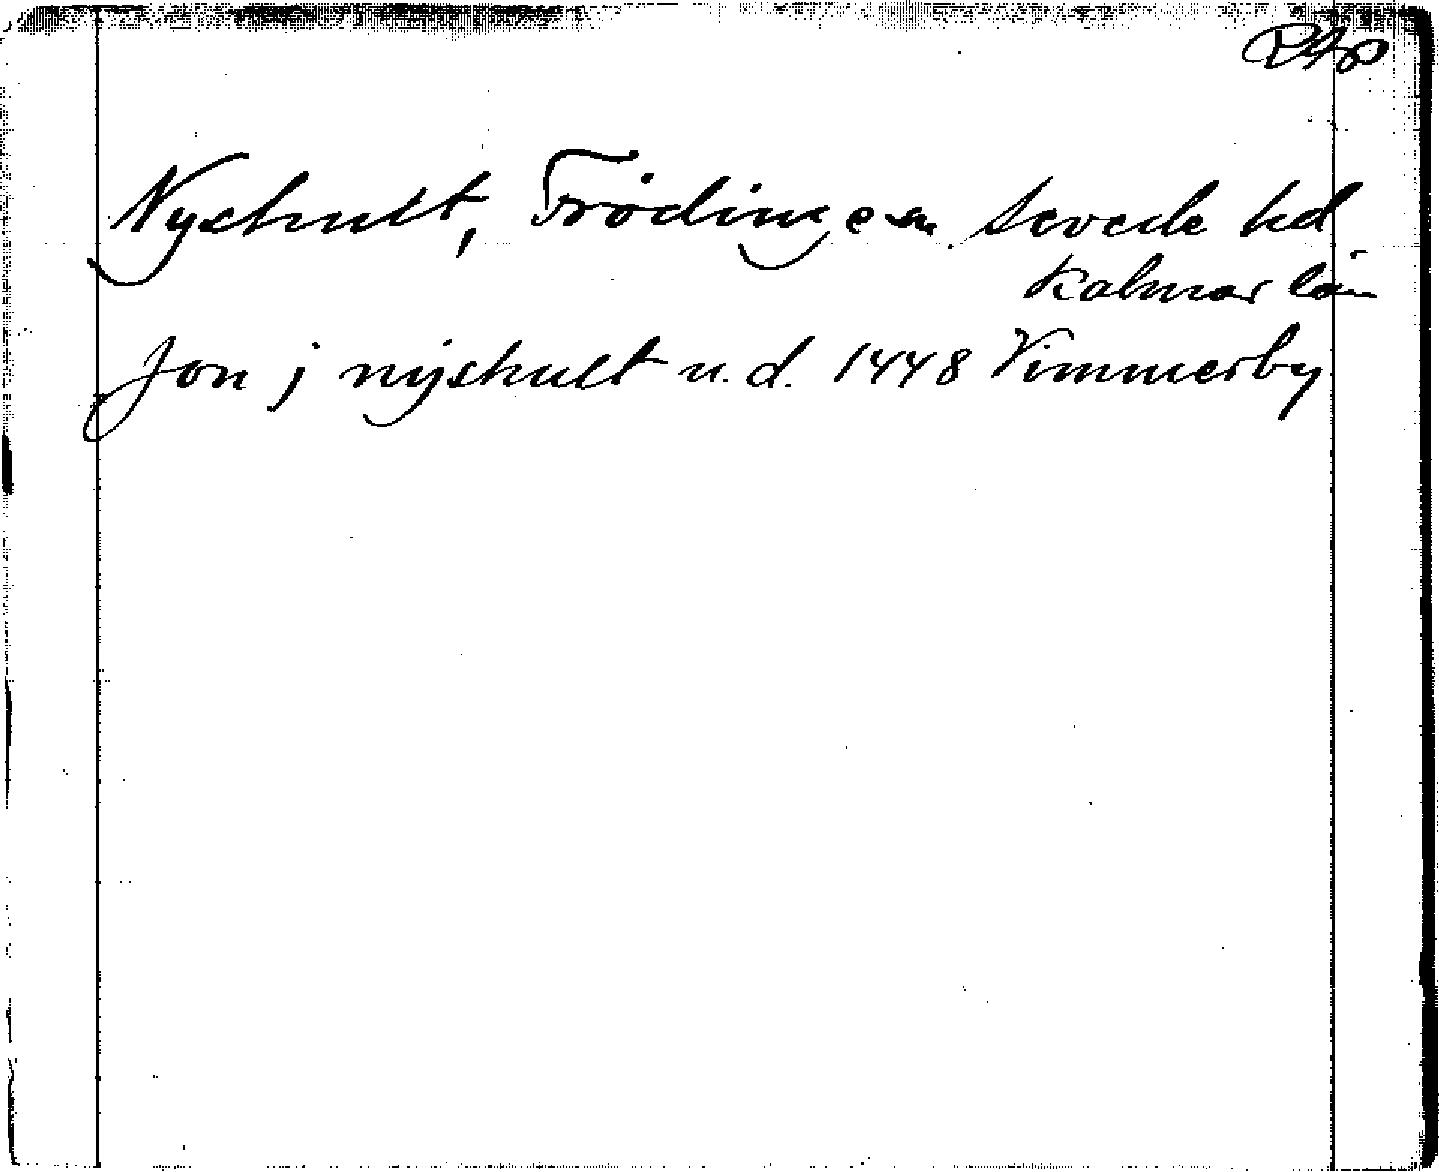 Nyshult, Frödinge sn, Sevede hd
Kalmar län
Jon j nyshult u.d. 1448 Vimmerby